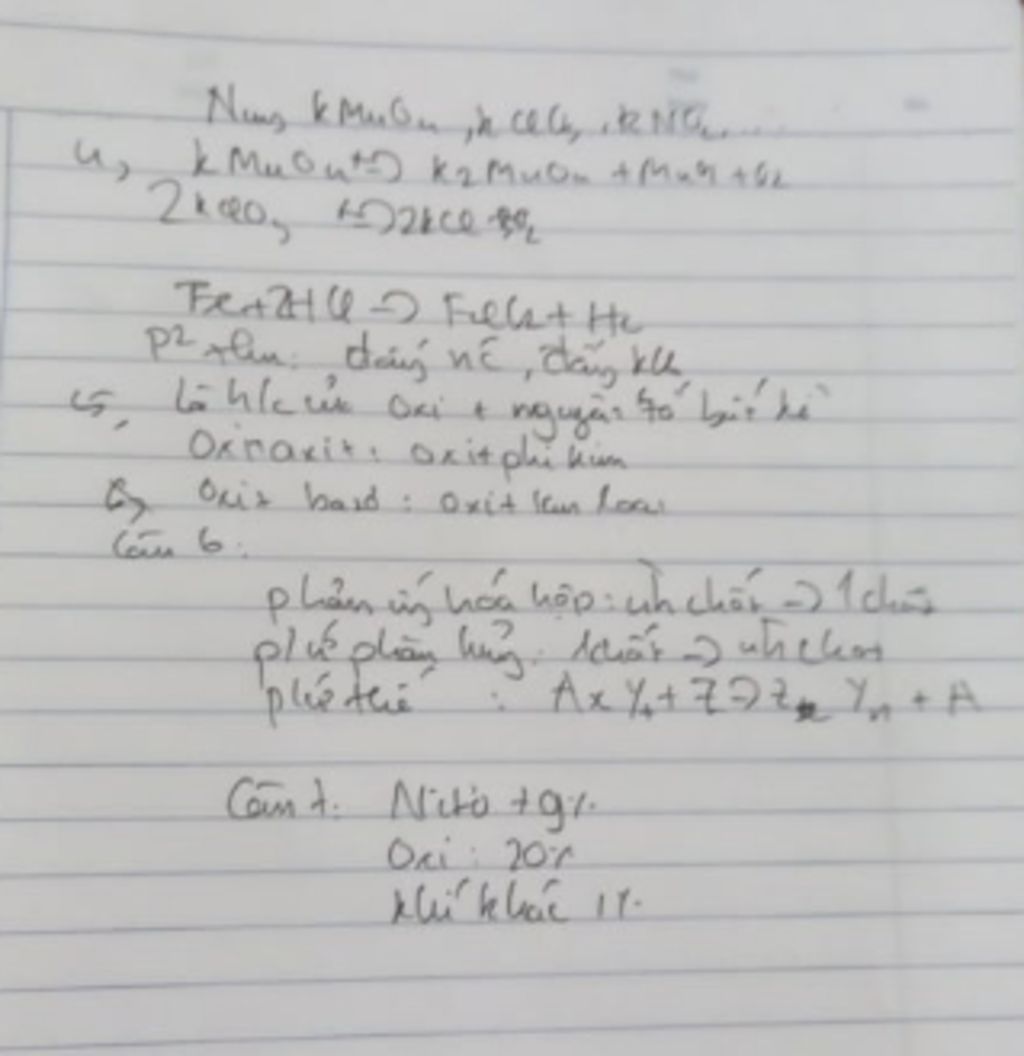 Nung KMnO4, KClO3, KNO3....
4, KMnO4 t°=> K2MnO4 + MnO2 + O2
2KClO3 t°=> 2KCl 3O2
Fe + 2HCl => FeCl2 + H2
P2 thu: đẩy nc, đẩy kk
5, Là h/c của oxi + nguyên tố bất kì
Oxit axit: oxit phi kim
Oxit bazơ: oxit kim loại
Câu 6:
phản ứng hóa hợp: nh chất => 1 chất
phân hủy: 1 chất => nh chất
thế : AxYn + Z => Z Yn + A
Câu 7: Nitơ 79%
Oxi: 20%
khí khác 1%